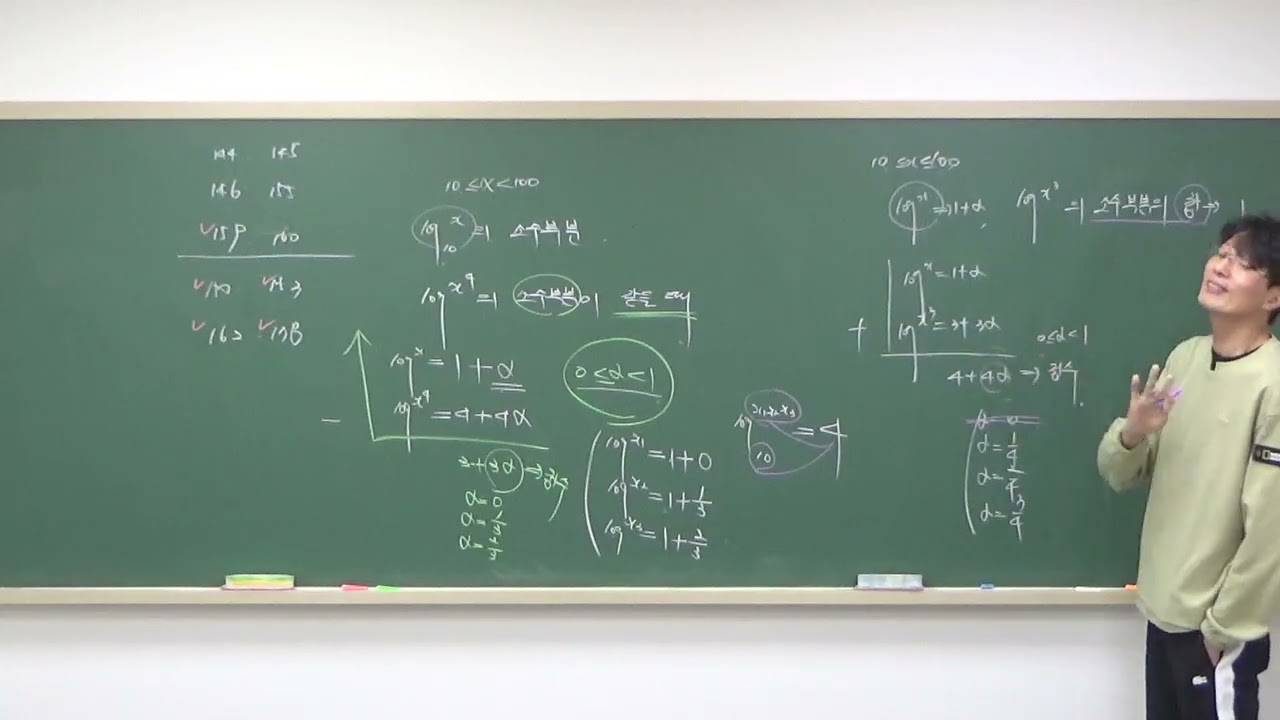 144 145
146 155
159 160
162
10 ≤ x < 100
log₁₀ x = 1 소수부분
log x⁴ = 1 소수부분이 같을 때
log x = 1 + α
log x⁴ = 4 + 4α
−
0 ≤ α < 1
3 + 3α ⇒ 정수
α = 0
α = 1/3
α = 2/3
log x₁ = 1 + 0
log x₂ = 1 + 1/3
log x₃ = 1 + 2/3
log₁₀ x₁x₂x₃ = 4
log x ⇒ 1 + α
log x³ 소수부분의 합 ⇒ 1
log x = 1 + α
+ log x³ = 3 + 3α
0 ≤ α < 1
4 + 4α ⇒ 정수
α = 0
α = 1/4
α = 2/4
α = 3/4